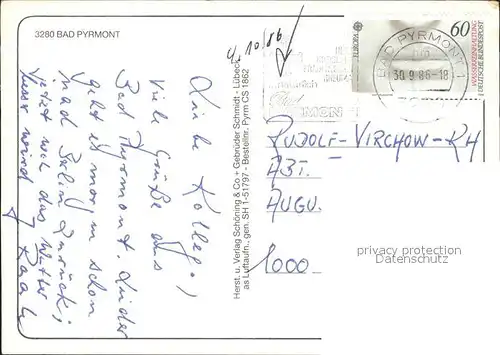 3280 BAD PYRMONT
4/10/86
EUROPA
60
WASSERREINHALTUNG
DEUTSCHE BUNDESPOST
BAD PYRMONT 1
30.9.86-18
MONT
Liebe Kolleg.,
viele Grüße aus
Bad Pyrmont. Leider
geht es morgen schon
nach Berlin zurück;
jetzt wo das Wetter
besser wird!
Herst. u. Verlag Schöning & Co + Gebrüder Schmidt - Lübeck
as Luftaufn., gen. SH 1-51797 - Bestellnr. Pyrm Cs 1862
RUDOLF-VIRCHOW-KH
ABT.
AUGU.
1000
privacy protection
Datenschutz